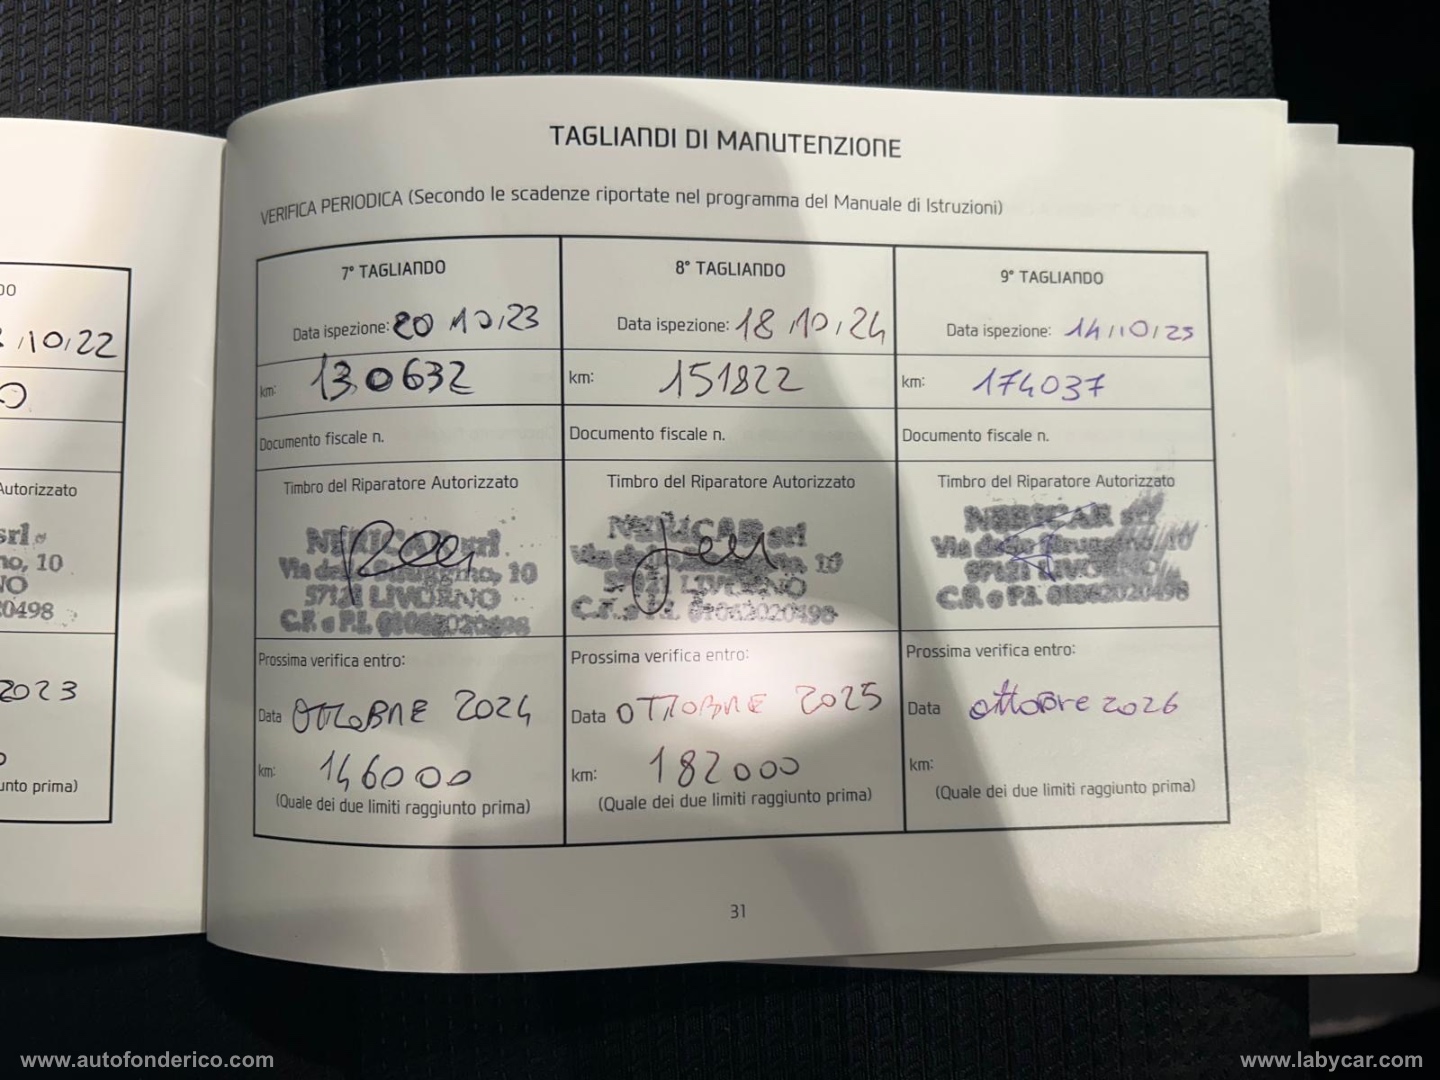 TAGLIANDI DI MANUTENZIONE
VERIFICA PERIODICA (Secondo le scadenze riportate nel programma del Manuale di Istruzioni)
7° TAGLIANDO
Data ispezione: 20 10/23
km: 130632
Documento fiscale n.
Timbro del Riparatore Autorizzato
NERICAR srl
Via dello Struggino, 10
57121 LIVORNO
C.F. e P.I. 01062020498
Prossima verifica entro:
Data OTTOBRE 2024
km: 146000
(Quale dei due limiti raggiunto prima)
8° TAGLIANDO
Data ispezione: 18/10/24
km: 151822
Documento fiscale n.
Timbro del Riparatore Autorizzato
NERICAR srl
Via dello Struggino, 10
57121 LIVORNO
C.F. e P.I. 01062020498
Prossima verifica entro:
Data OTTOBRE 2025
km: 182000
(Quale dei due limiti raggiunto prima)
9° TAGLIANDO
Data ispezione: 14/10/25
km: 174037
Documento fiscale n.
Timbro del Riparatore Autorizzato
NERICAR srl
Via dello Struggino, 10
57121 LIVORNO
C.F. e P.I. 01062020498
Prossima verifica entro:
Data ottobre 2026
km:
(Quale dei due limiti raggiunto prima)
DO
/10/22
0
Autorizzato
srl
no, 10
NO
20498
2023
0
iunto prima)
31
www.autofonderico.com
www.labycar.com